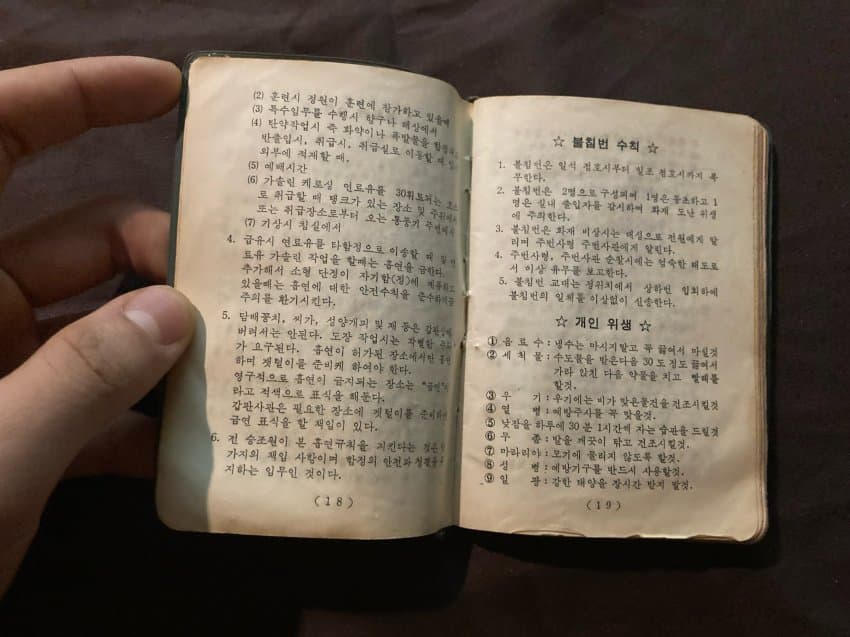 (2) 훈련시 정원이 훈련에 참가하고 있을때
(3) 특수임무를 수행시 항구나 해상에서
(4) 탄약작업시 즉 화약이나 폭발물을
반출입시, 취급시, 취급실로 이동할 때
외부에 적재할 때,
(5) 예배시간
(6) 가솔린 케로싱 연료유를 30휘트되는
로 취급할 때 탱크가 있는 장소 및
또는 취급장소로부터 오는 통풍기 주변에서
(7) 기상시 침실에서
4. 급유시 연료유를 타함정으로 이송할 때 및
트유 가솔린 작업을 할때는 흡연을 금한다.
추가해서 소형 단정이 자기함(정)에 계류하고
있을때는 흡연에 대한 안전수칙을 준수하라고
주의를 환기시킨다.
5. 담배꽁치, 씨가, 성냥개피 및 재 등은 갑판상에
버려서는 안된다. 도장 작업시는 작별한
가 요구된다. 흡연이 허가된 장소에서만
하며 잿털이를 준비케 하여야 한다.
영구적으로 흡연이 금지되는 장소는 "금연"이
라고 적색으로 표식을 해둔다.
갑판사관은 필요한 장소에 잿털이를 준비하며
금연 표식을 할 책임이 있다.
6. 전 승조원이 본 흡연규칙을 지킨다는 것은
가지의 책임 사항이며 함정의 안전과 청결을
지하는 임무인 것이다.
(18)
☆ 불침번 수칙 ☆
1. 불침번은 일석 점호시부터 일조 점호시까지 복
무한다.
2. 불침번은 2명으로 구성되며 1명은 동초하고 1
명은 실내 출입자를 감시하며 화재 도난 위생
에 주의한다.
3. 불침번은 화재 비상시는 대성으로 전원에게 알
리며 주번사령 주번사관에게 알린다.
4. 주번사령, 주번사관 순찰시에는 엄숙한 태도로
서 이상 유무를 보고한다.
5. 불침번 교대는 정위치에서 상하번 입회하에
불침번의 일체를 이상없이 신송한다.
☆ 개인 위생 ☆
① 음료수 : 냉수는 마시지말고 꼭 끓여서 마실것
② 세척물 : 수도물을 받은다음 30도 정도 끓여서
가라 앉친 다음 약물을 치고 빨래를
할것.
③ 우 기 : 우기에는 비가 맞은물건을 건조시킬것
④ 열 병 : 예방주사를 꼭 맞을것.
⑤ 낮잠을 하루에 30분 1시간씩 자는 습관을 드릴것
⑥ 무 좀 : 발을 깨끗이 닦고 건조시킬것.
⑦ 마라리아 : 모기에 물리지 않도록 할것.
⑧ 성 병 : 예방기구를 반드시 사용할것.
⑨ 일 광 : 강한 태양을 장시간 받지 말것.
(19)